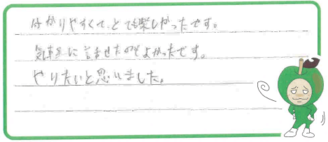 わかりやすくて、とても楽しかったです。
気軽に言ませたのでよかったです。
やりたいと思いました。